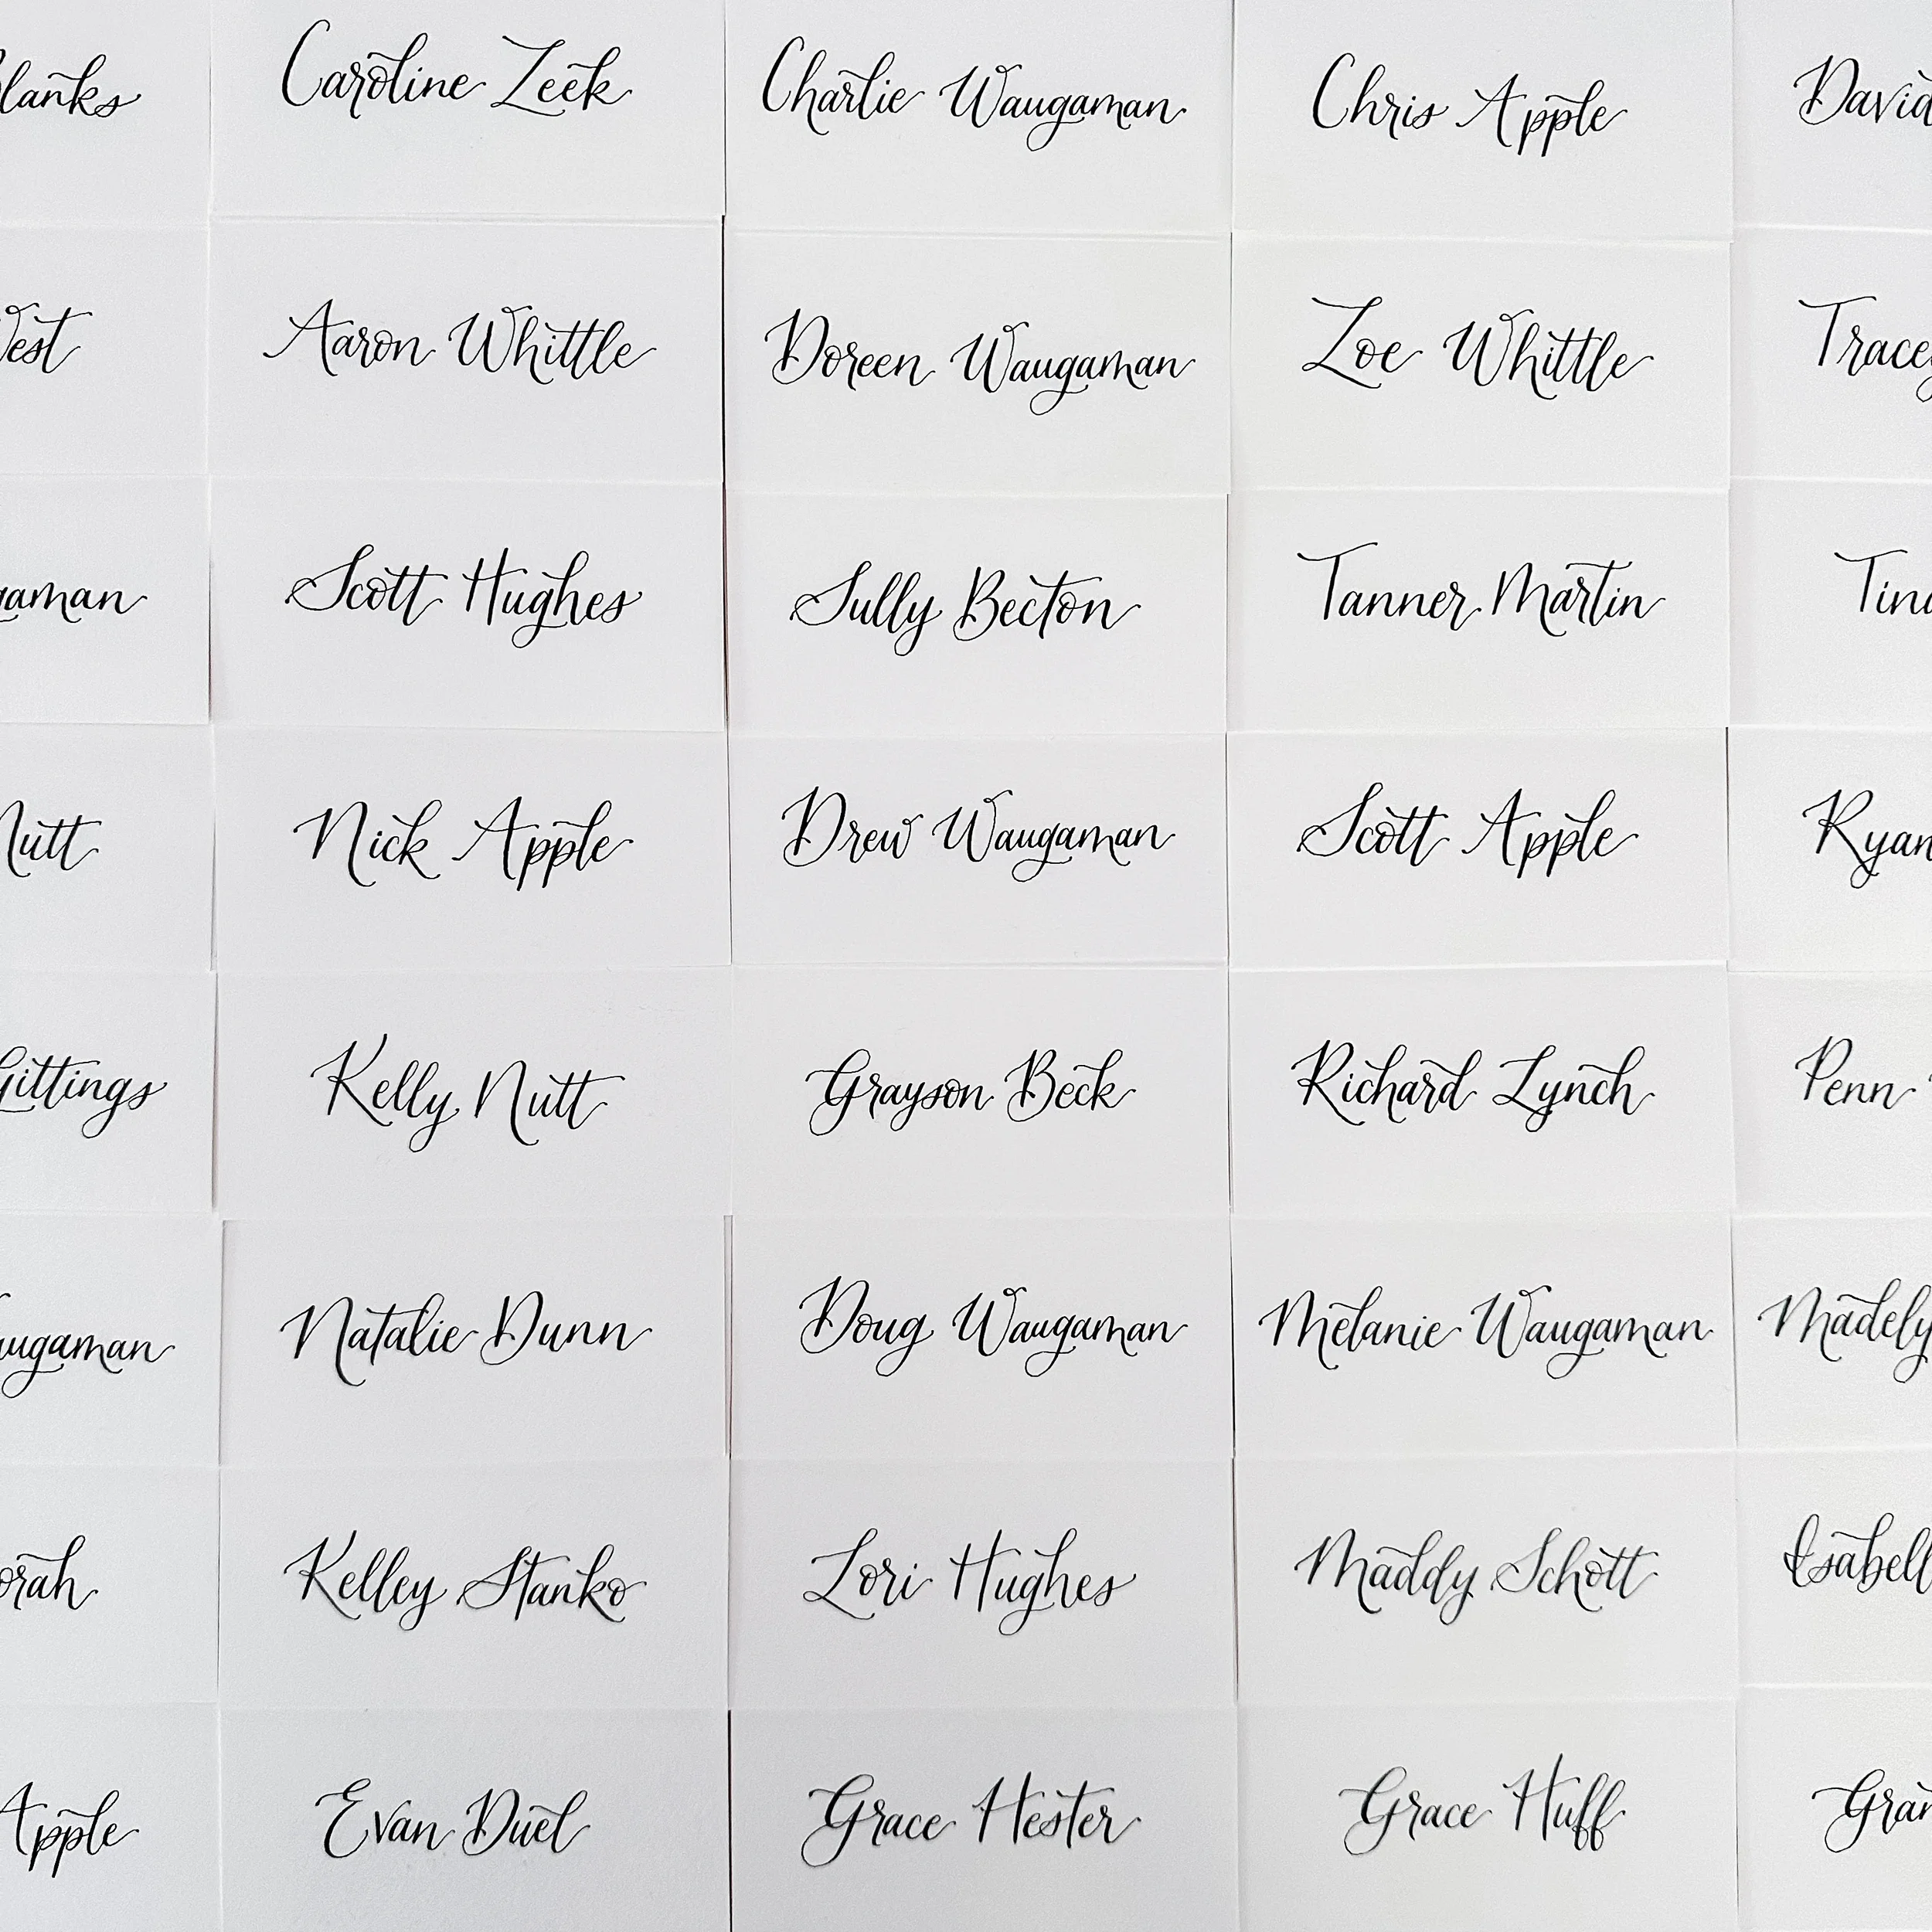 Caroline Zeek Charlie Waugaman Chris Apple David
West Aaron Whittle Doreen Waugaman Zoe Whittle Tracey
Scott Hughes Sully Becton Tanner Martin
Nutt Nick Apple Drew Waugaman Scott Apple Ryan
Gittings Kelly Nutt Grayson Beck Richard Lynch Penn
Natalie Dunn Doug Waugaman Melanie Waugaman
Kelley Stanko Lori Hughes Maddy Schott
Apple Evan Duel Grace Hester Grace Huff